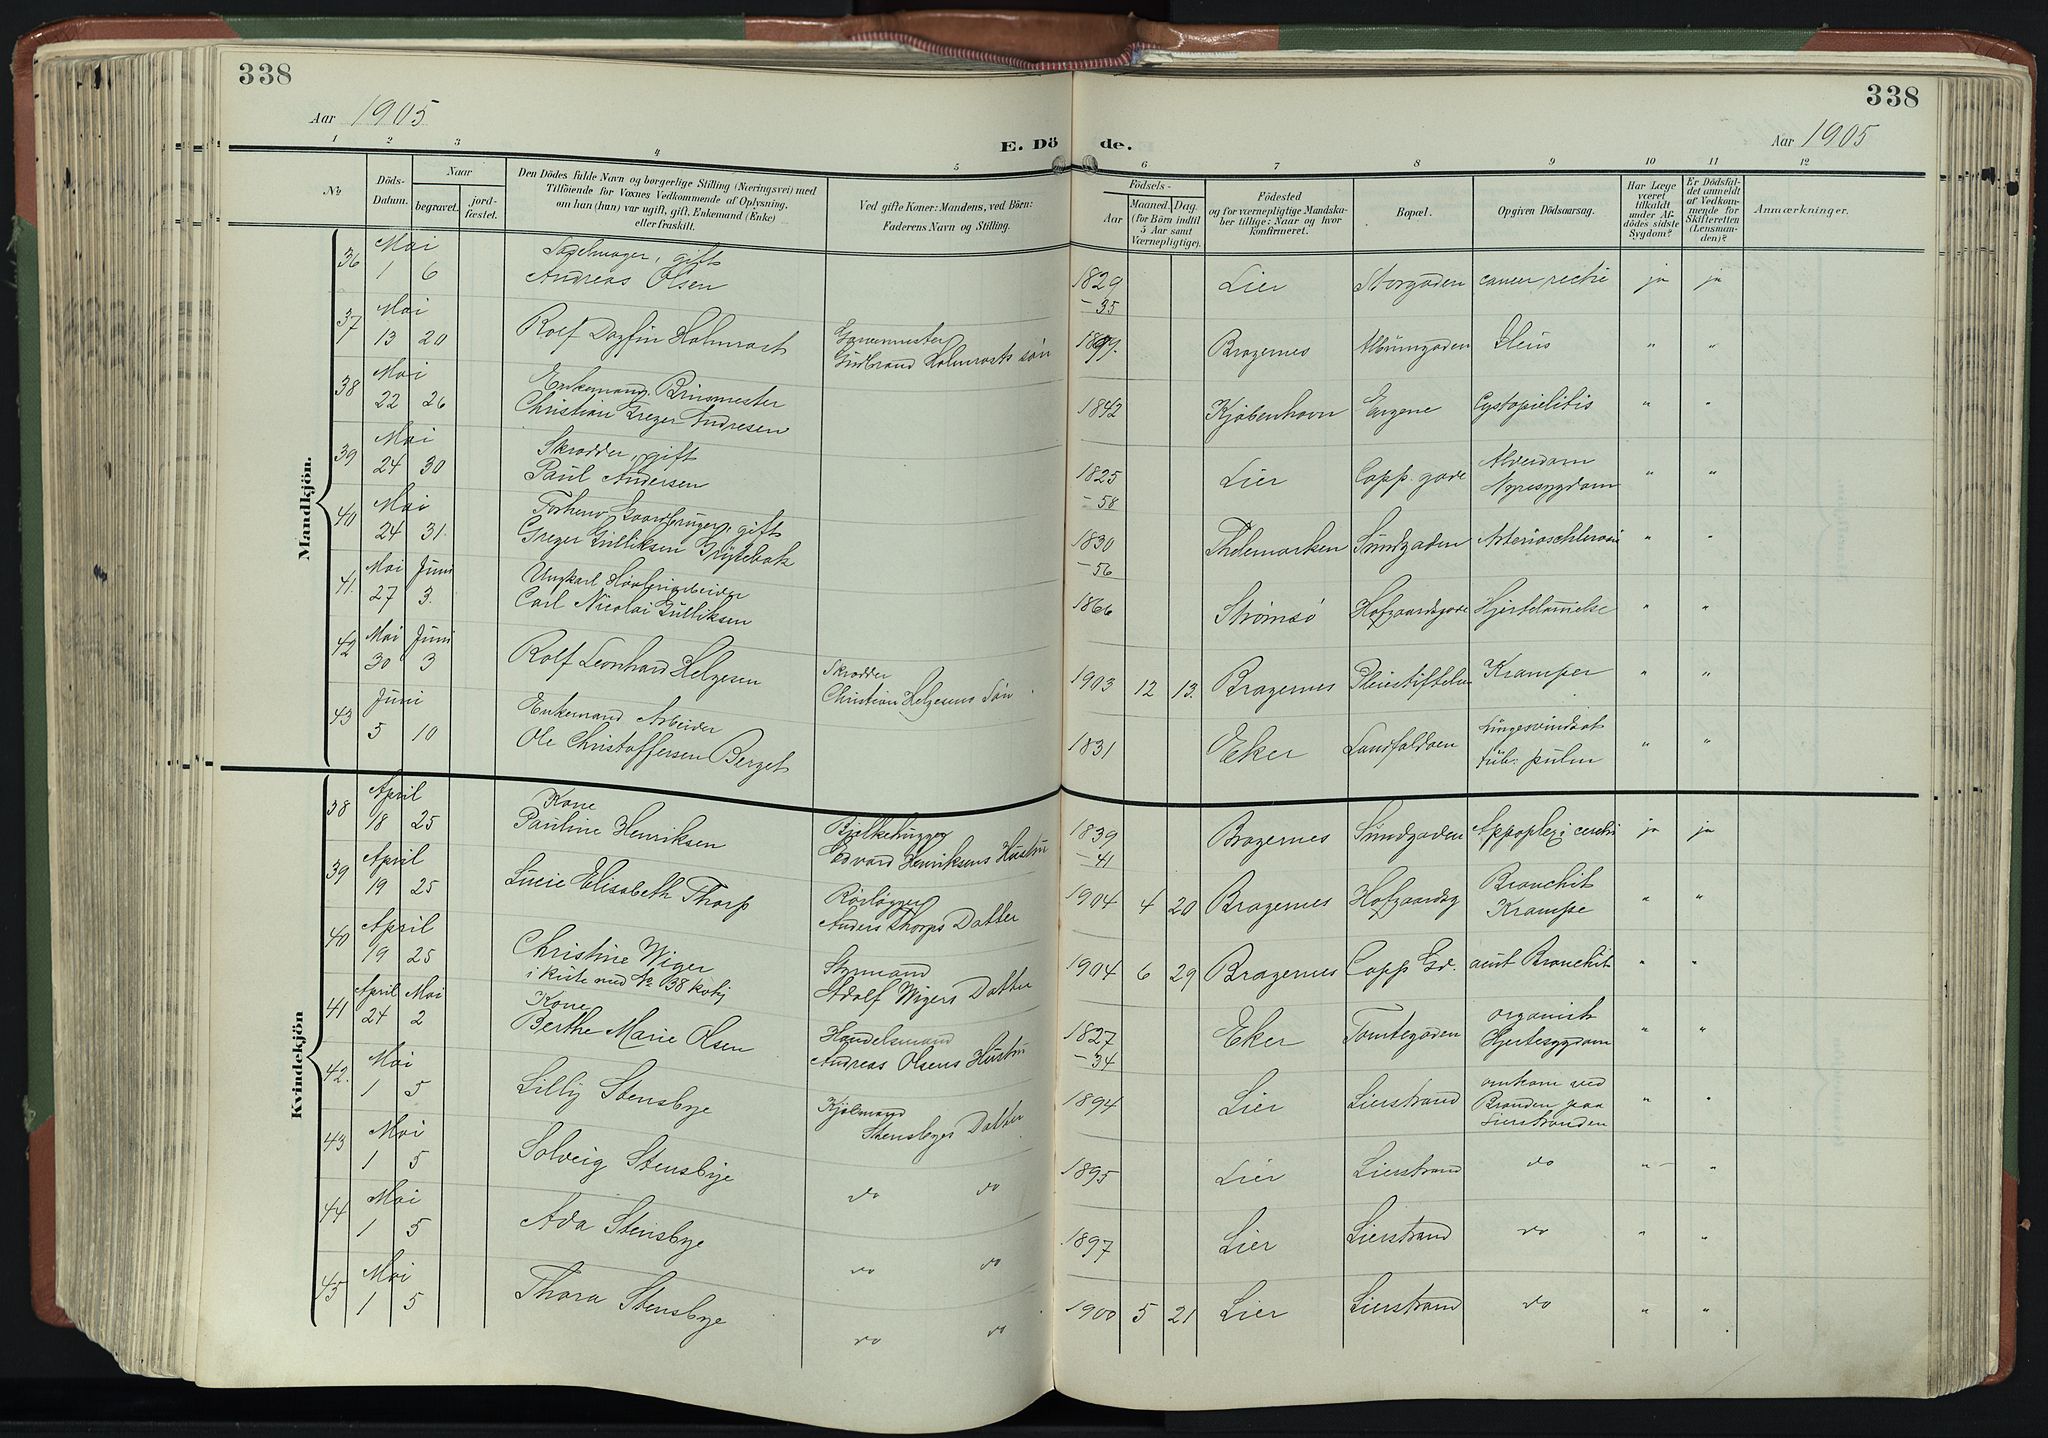 338
338
Aar 1905
Aar 1905
E. Dö de.
1 2 3 4 5 6 7 8 9 10 11 12
No.
Döds-Datum.
Naar
begravet.
jord-fæstet.
Den Dödes fulde Navn og borgerlige Stilling (Næringsvei) med
Tilföiende for Voxnes Vedkommende af Oplysning,
om han (hun) var ugift, gift, Enkemand (Enke)
eller fraskilt.
Ved gifte Koner: Mandens, ved Börn:
Faderens Navn og Stilling.
Födsels-
Aar
Maaned. Dag.
(for Börn indtil
5 Aar samt
Værnepligtige).
Födested
og for værnepligtige Mandska-
ber tillige: Naar og hvor
konfirmeret.
Bopæl.
Opgiven Dödsaarsag.
Har Læge
været
tilkaldt
under Af-
dödes sidste
Sygdom?
Er Dödsfal-
det anmeldt
af Vedkom-
mende for
Skifteretten
(Lensman-
den)?
Anmærkninger.
Mandkjön.
36 Mai 1 6 gift Andreas Olsen 1829 -35 Lier Storgaden cancer recti ja ja
37 Mai 13 20 Rolf Dagfin Holmrast Garvermester Gudbrand Holmrasts søn Bragernes Ileus " "
38 Mai 22 26 Enkemand. Christian Greger Andresen 1842 Kjøbenhavn Engene Cystopielitis " "
39 Mai 24 30 Skrædder, gift Paul Andersen 1825 -58 Lier Capp. gade Alderdom Nyresygdom " "
40 Mai 24 31. Forhenv Gaardbruger, gift Greger Gulliksen 1830 -56 Thelemarken Sundgaden " "
41. Mai 27 Juni 3. Ungkarl Høvleriarbeider Carl Nicolai Gulliksen 1866 Strømsø Hofgaardsgade Hjertelammelse " "
42 Mai 30 Juni 3 Rolf Leonhard Helgesen Skrædder Christian Helgesens Søn 1903 12 13. Bragernes Pleiestiftelse Kramper " "
43 Juni 5 10 Enkemand Arbeider Ole Christoffersen Berget 1831 Eker Landfaldøen Lungesvindsot tub. pulm " "
Kvindekjön
38 April 18 25 Kone Pauline Henriksen Bjelkehugger Edvard Henriksens Hustru 1839 -41 Bragernes Sundgaden Appoplexi cerebri ja ja
39 April 19 25 Lucie Elisabeth Thorp Rörlägger Anders Thorps Datter 1904 4 20 Bragernes Hofgaardsg Bronchit Krampe " "
40 April 19 25 Christine Wiger i kiste med No 38 Styrmand Adolf Wigers Datter 1904 6 29 Bragernes Capp Gd. acut Bronchit " "
41 April 24 Mai 2 Kone Berthe Marie Olsen Handelsmand Andreas Olsens Hustru 1827 -34 Eker Tomtegaden organisk Hjertesygdom " "
42. Mai 1 5 Lilly Stensbye Kjølmand Stensbyes Datter 1894 Lier Lierstrand omkom ved Branden paa Lierstranden " "
43 Mai 1 5 Solveig Stensbye do do 1895 Lier Lierstrand do " "
44 Mai 1 5 Ada Stensbye do do 1897 Lier Lierstrand do " "
45 Mai 1 5 Thora Stensbye do do 1900 5 21 Lier Lierstrand do " "